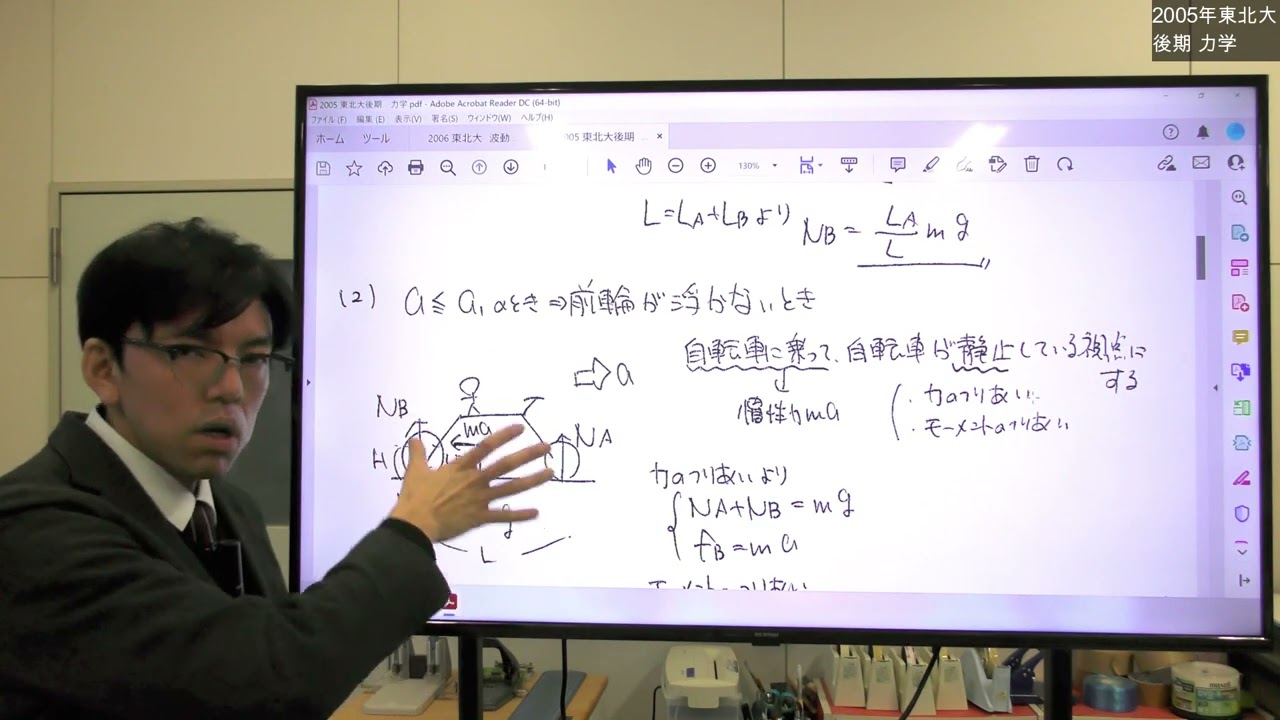 2005年東北大
後期 力学
2005 東北大後期 力学.pdf - Adobe Acrobat Reader DC (64-bit)
ファイル(F) 編集(E) 表示(V) 署名(S) ウィンドウ(W) ヘルプ(H)
ホーム ツール 2006 東北大 波動 005 東北大後期 ... ×
130%
L=LA+LBより NB = LA/L mg
(2) a≦a₁のとき⇒前輪が浮かないとき
自転車に乗って、自転車が静止している視点に
する
慣性力ma
・力のつりあい
・モーメントのつりあい
a
NB
ma
NA
H
g
L
力のつりあいより
NA+NB=mg
fB=ma
モーメントのつりあい